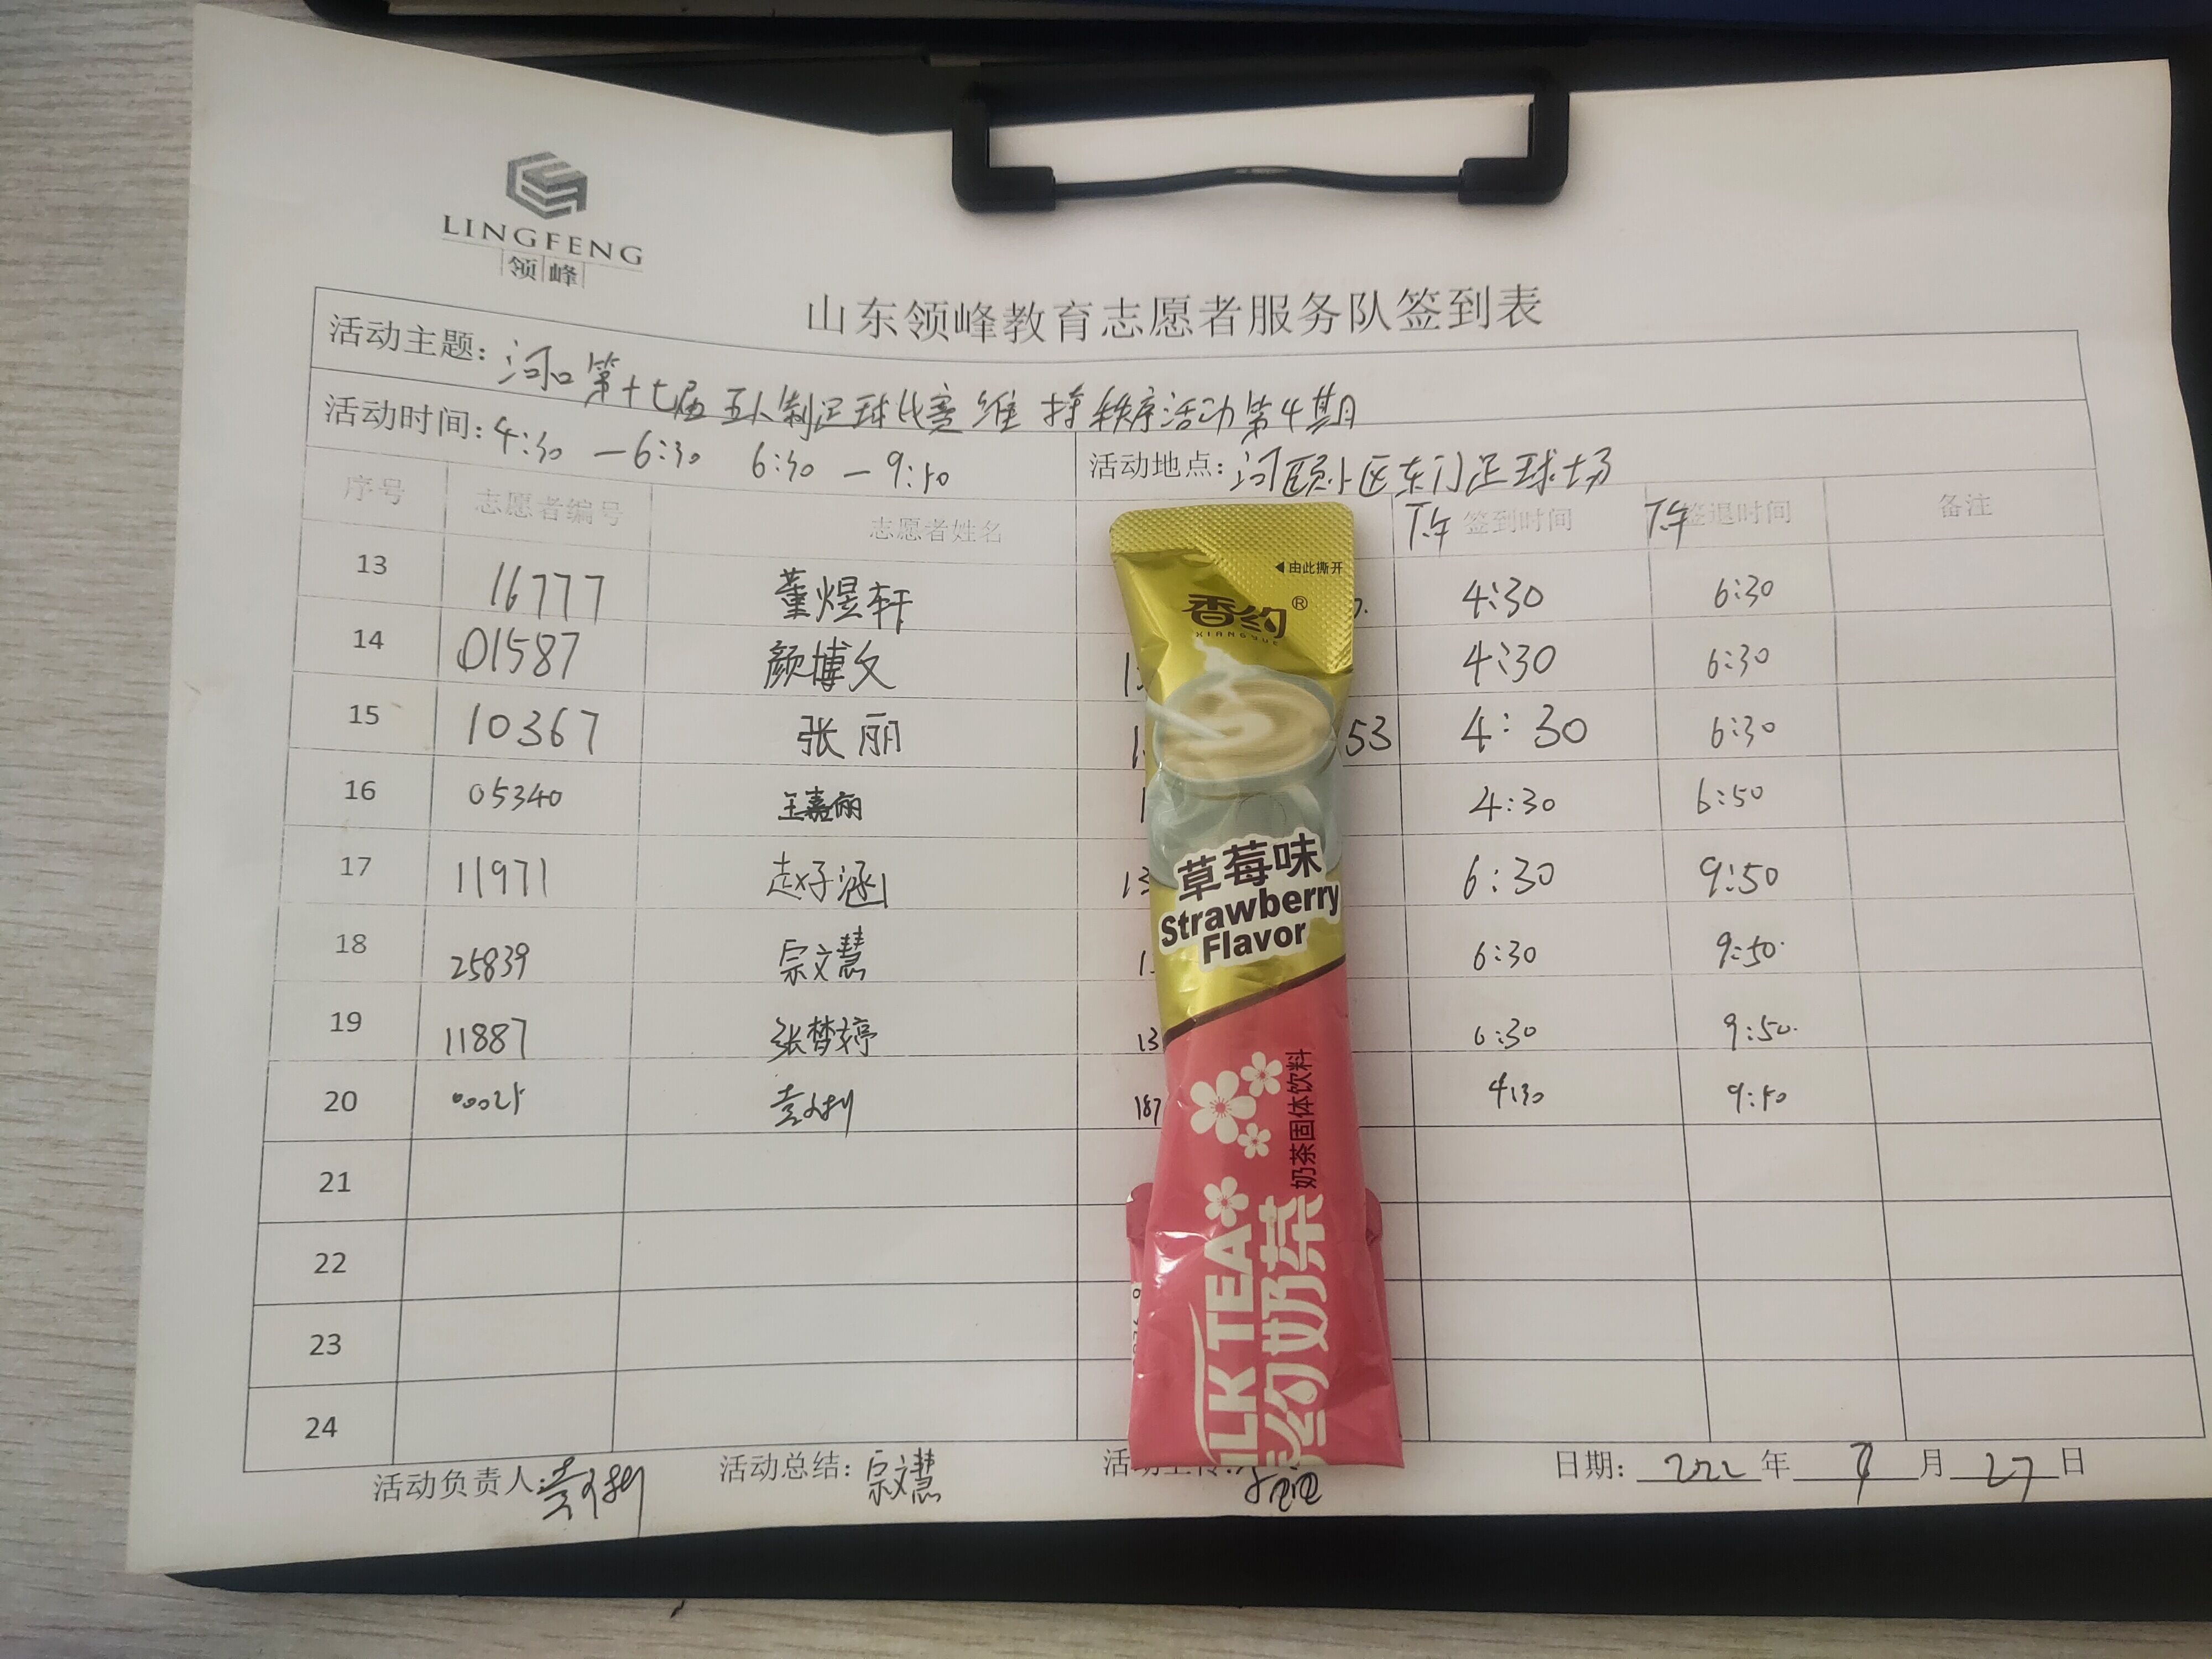 LINGFENG
领峰
山东领峰教育志愿者服务队签到表
活动主题: 河口第十七届五人制足球比赛维持秩序活动第4期
活动时间: 4:30 — 6:30 6:30 — 9:50 活动地点: 河颐小区东门足球场
序号 志愿者编号 志愿者姓名 下午 签到时间 下午 签退时间 备注
13 16777 董煜轩 4:30 6:30
14 01587 颜博文 4:30 6:30
15 10367 张丽 53 4:30 6:30
16 05340 王嘉丽 4:30 6:50
17 11971 赵子涵 13 6:30 9:50
18 25839 宗文慧 6:30 9:50
19 11887 张梦婷 13 6:30 9:50
20 187 4:30 9:50
21
22
23
24
活动负责人: 活动总结: 宗文慧 日期: 年 月 27 日
由此撕开
香约®
XIANGYUE
草莓味
Strawberry
Flavor
奶茶固体饮料
ILK TEA
约奶茶